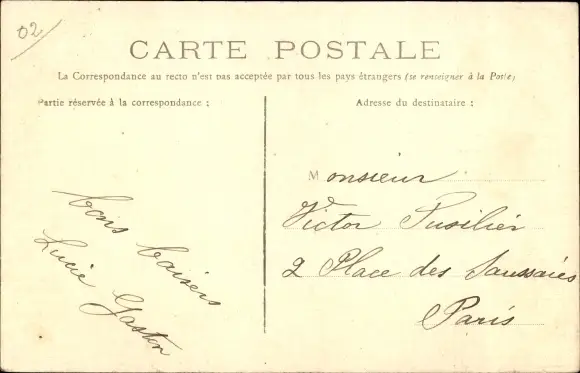 02
CARTE POSTALE
La Correspondance au recto n'est pas acceptée par tous les pays étrangers (se renseigner à la Poste)
Partie réservée à la correspondance :
bons baisers
Lucie Gaston
Adresse du destinataire :
Monsieur
Victor Pusilier
2 Place des Saussaies
Paris